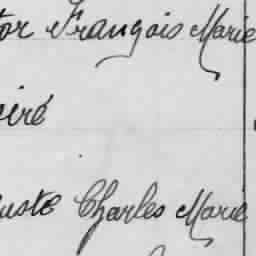 tor François Marie
oiré
uste Charles Marie